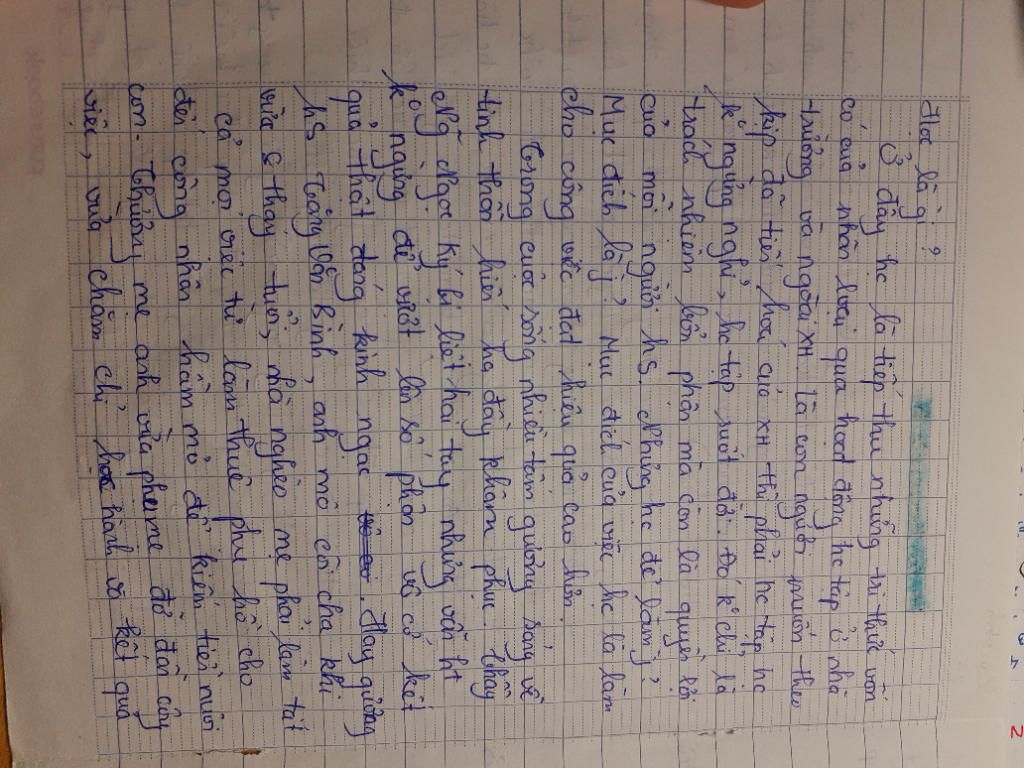 Học là gì?
Ở đây hc là tiếp thu những tri thức vốn
có của nhân loại qua hoạt động hc tập ở nhà
trường và ngoài XH. Là con người muốn theo
kịp đà tiến hoá của XH thì phải hc tập hc
k ngừng nghỉ, hc tập suốt đời. Đó k chỉ là
trách nhiệm bổn phận mà còn là quyền lợi
của mỗi người hs. Nhưng hc để làm j?
Mục đích là j? Mục đích của việc hc là làm
cho công việc đạt hiệu quả cao hơn.
Trong cuộc sống nhiều tấm gương sáng về
tinh thần hiếu hc đầy khâm phục. Thầy
Ng Ngọc Ký bị liệt hai tay nhưng vẫn ht
k ngừng để vượt lên số phận và có kết
quả thật đáng kinh ngạc. Hay gương
hs Trương Văn Bình, anh mồ côi cha khi
vừa 6 thág tuổi, nhà nghèo mẹ phải làm tất
cả mọi việc từ làm thuê phụ hồ cho
đến công nhân hầm mỏ để kiếm tiền nuôi
con. Thương mẹ anh vừa phụ mẹ đỡ đần côg
việc, vừa chăm chỉ hc hành và kết quả